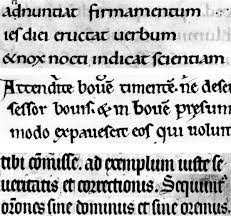 adnuntiat firmamentum
ies diei eructat uerbum
&nox nocti indicat scientiam
Attendite bouē timentē. ne deser
sessor bouis. & in bouē presum
modo expauescere eos qui uolunt
tibi cōmisse. ad exemplum iuste se
ueritatis et correctionis. Sequūt
orōnes sine dominus et sine oremus.